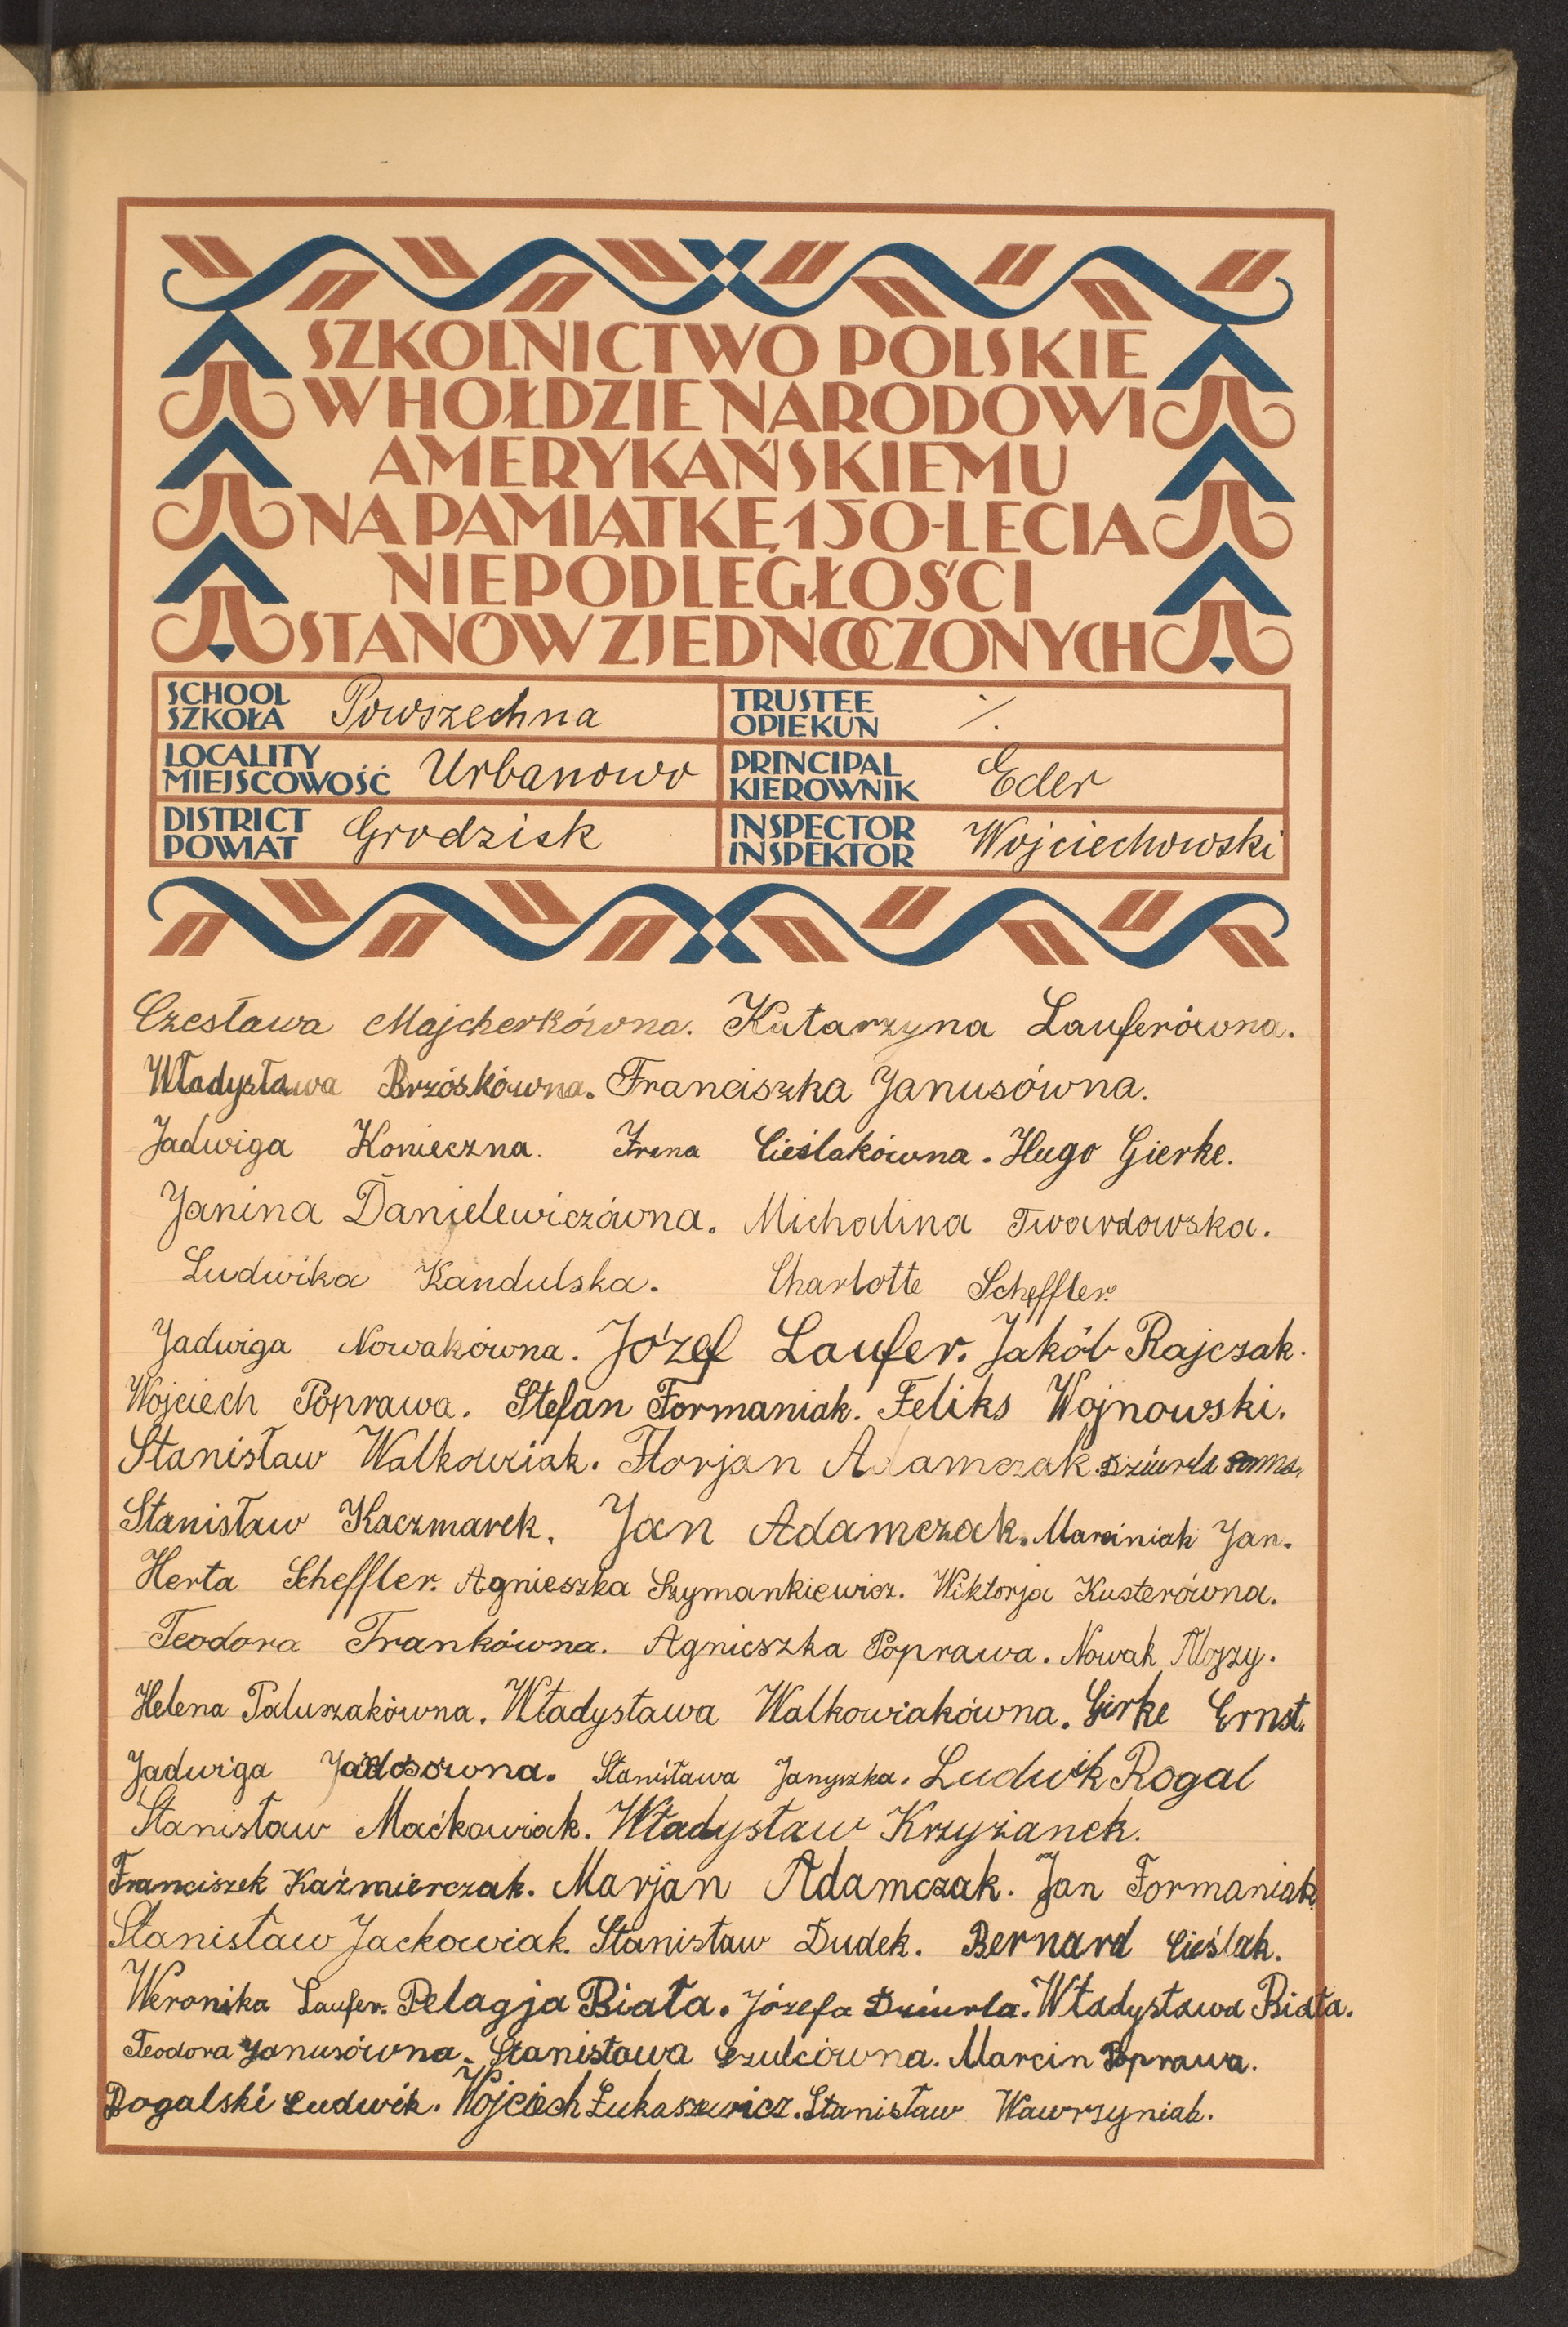 SZKOLNICTWO POLSKIE
W HOŁDZIE NARODOWI
AMERYKAŃSKIEMU
NA PAMIĄTKĘ 150-LECIA
NIEPODLEGŁOŚCI
STANÓW ZJEDNOCZONYCH
SCHOOL
SZKOŁA Powszechna
TRUSTEE
OPIEKUN ./.
LOCALITY
MIEJSCOWOŚĆ Urbanowo
PRINCIPAL
KIEROWNIK Eder
DISTRICT
POWIAT Grodzisk
INSPECTOR
INSPEKTOR Wojciechowski
Czesława Majcherkówna. Katarzyna Lauferówna.
Władysława Brzóskówna. Franciszka Janusówna.
Jadwiga Konieczna. Irena Cieślakówna. Hugo Gierke.
Janina Danielewiczówna. Michalina Twardowska.
Ludwika Kandulska. Charlotte Scheffler.
Jadwiga Nowakówna. Józef Laufer. Jakób Rajczak.
Wojciech Poprawa. Stefan Formaniak. Feliks Wojnowski.
Stanisław Walkowiak. Florjan Adamczak. Dziurla
Stanisław Kaczmarek. Jan Adamczak. Marciniak Jan.
Herta Scheffler. Agnieszka Szymankiewicz. Wiktorja Kusterówna.
Teodora Frankówna. Agnieszka Poprawa. Nowak
Helena Paluszakówna. Władysława Walkowiakówna. Girke Ernst.
Jadwiga Stanisława Janyszka. Ludwik Rogal
Stanisław Maćkowiak. Władysław Krzyżanek.
Franciszek Kaźmierczak. Marjan Adamczak. Jan Formaniak
Stanisław Jackowiak. Stanisław Dudek. Bernard Cieślak.
Weronika Laufer. Pelagja Biała. Józefa Dziurla. Władysława Biała.
Teodora Janusówna. Stanisława Szulcówna. Marcin Poprawa.
Rogalski Ludwik. Wojciech Łukaszewicz. Stanisław Wawrzyniak.